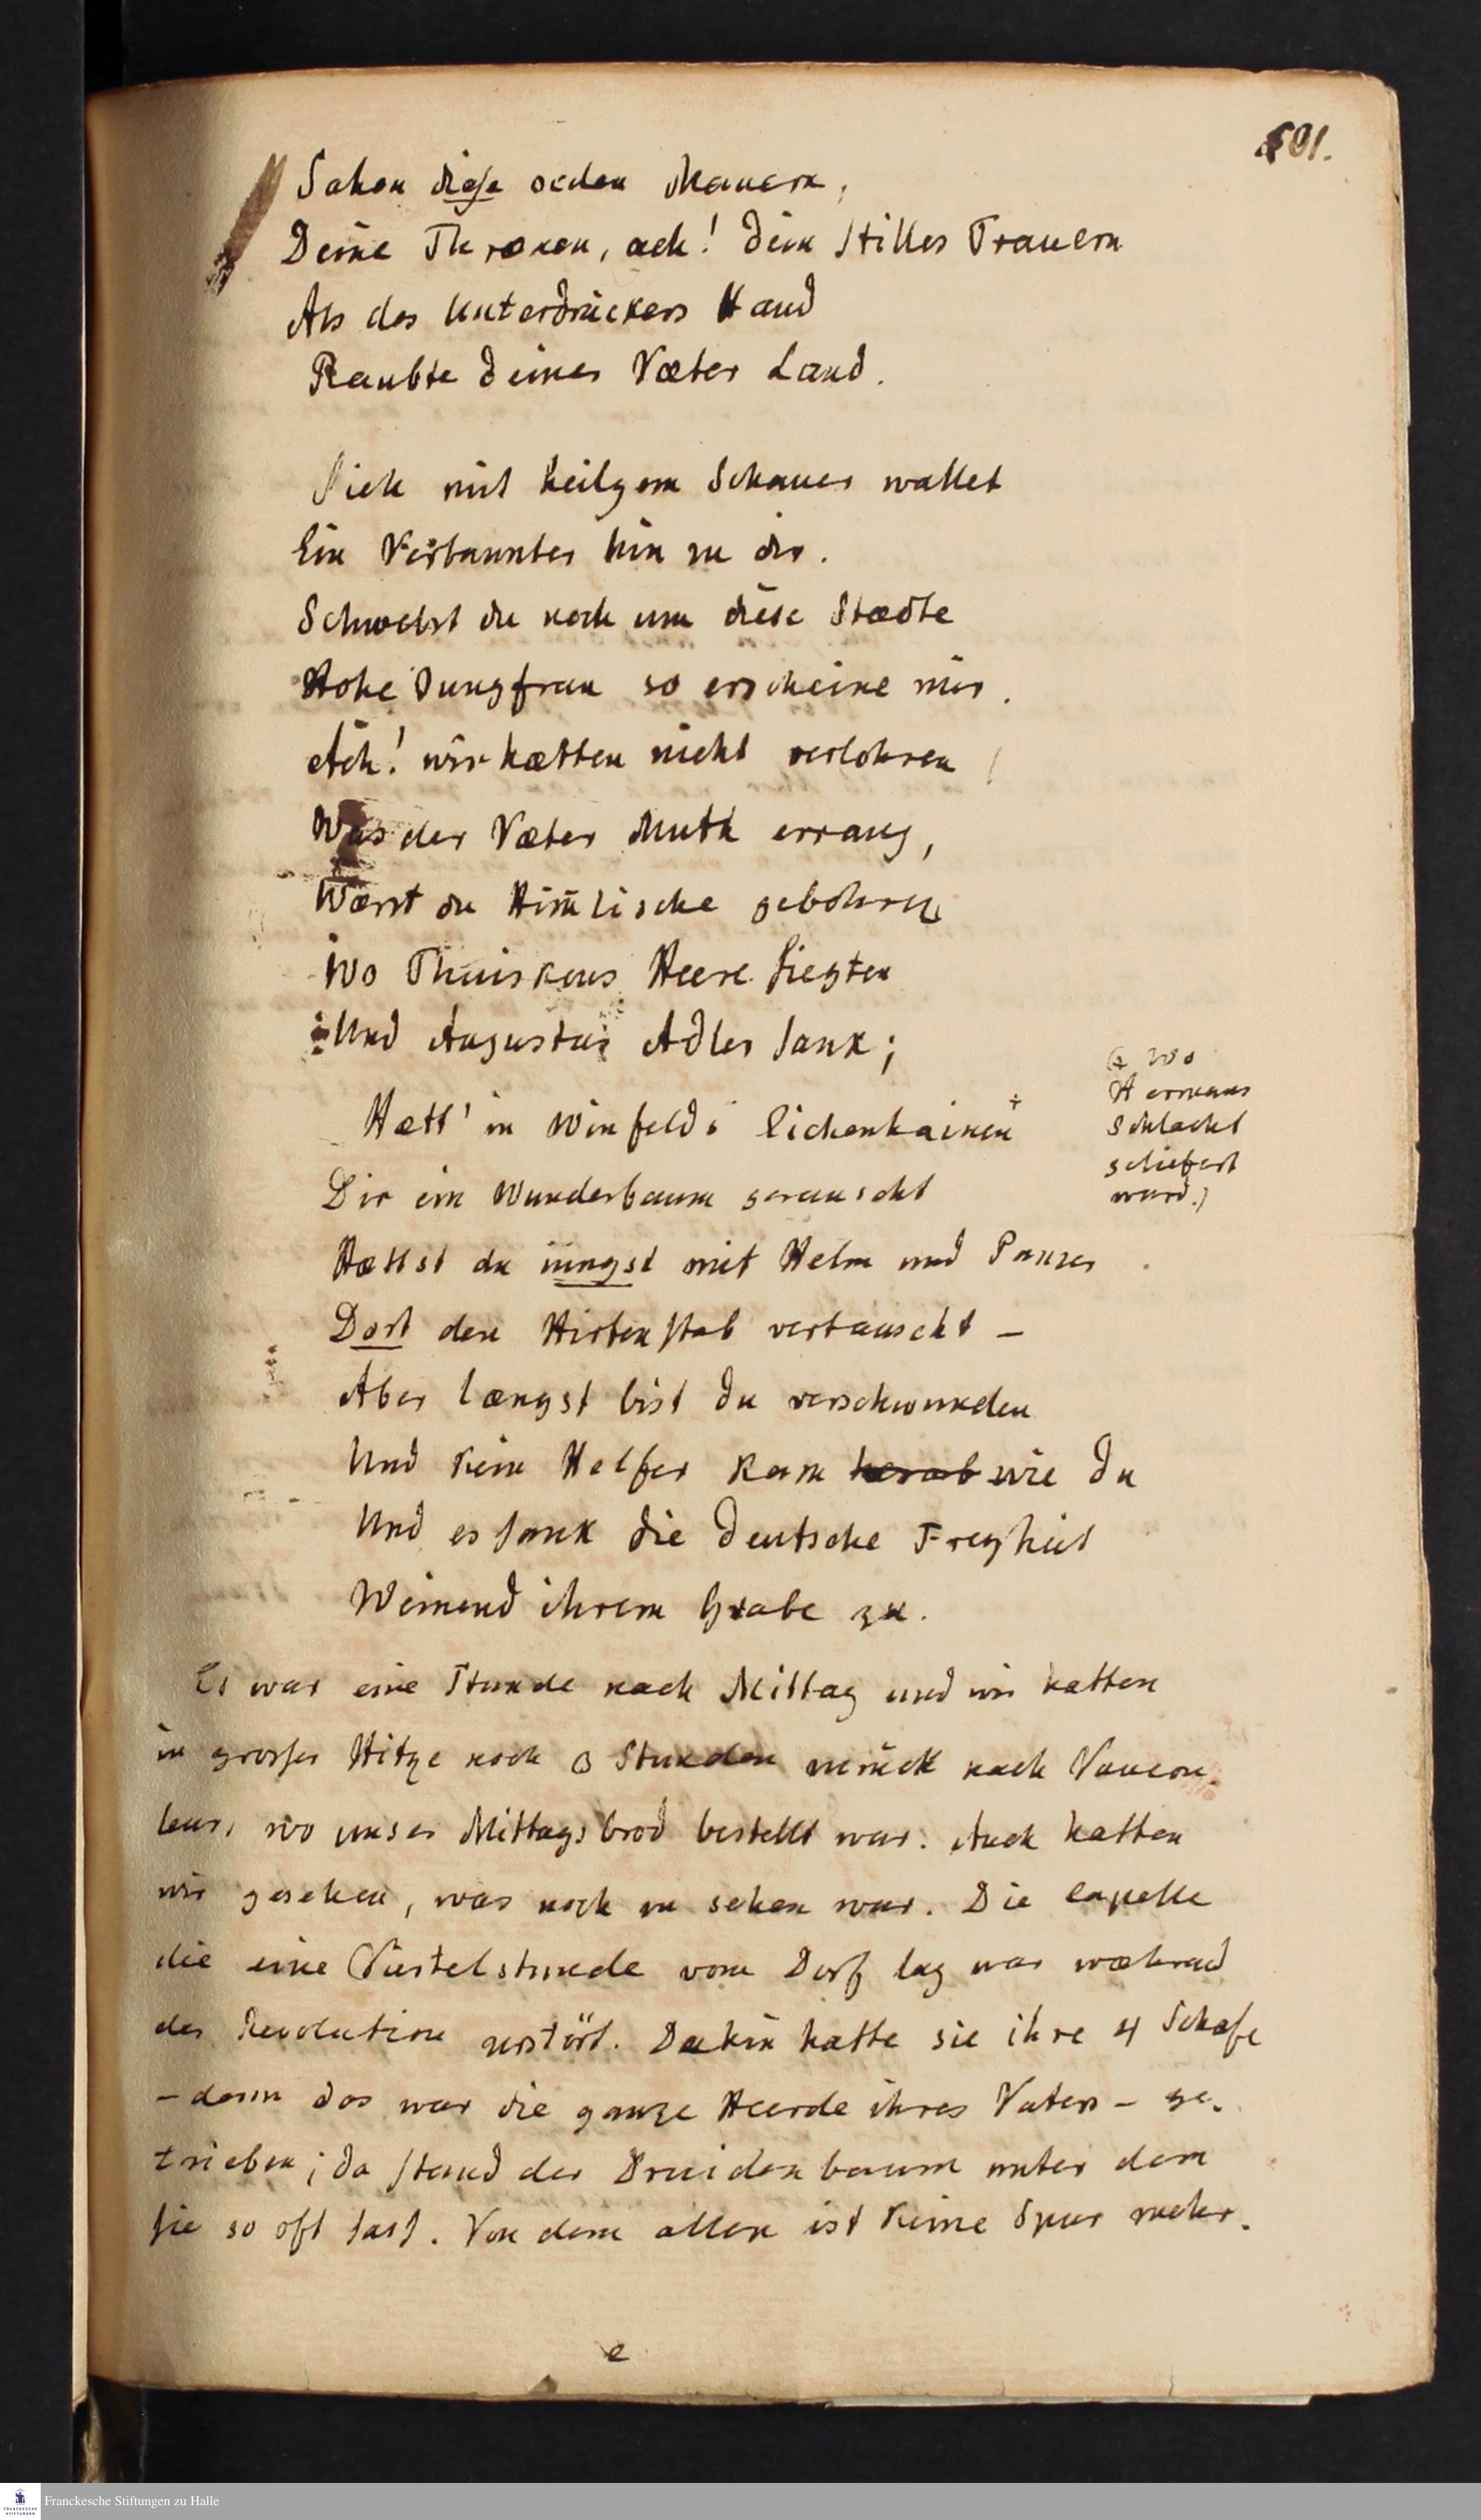 501.
Sahen diese oeden Mauern,
Deine Thrænen, ach! dein stilles Trauern
Als des Unterdrückers Hand
Raubte deiner Væter Land.
Sieh mit heilgem Schauer wallet
Ein Verbannter hin zu dir.
Schwebst du noch um diese Stædte
Hohe Jungfrau so erscheine mir.
Ach! wir hætten nicht verlohren
Was der Væter Muth errang,
Wærst du Him̄lische gebohren
Wo Thuiskons Heere siegten
Und Augustus Adler sank;
Hætt' in Winfelds Eichenhainen +
(+ Wo
Hermanns
Schlacht
geliefert
ward.)
Dir ein Wunderbaum gerauscht
Hættst du iüngst mit Helm und Panzer
Dort den Hirtenstab vertauscht –
Aber længst bist du verschwunden
Und kein Helfer kam herab wie du
Und es sank die deutsche Freyheit
Weinend ihrem Grabe zu.
Es war eine Stunde nach Mittag und wir hatten
in grosser Hitze noch 3 Stunden zurück nach Vaucou-
leurs, wo unser Mittagsbrod bestellt war. Auch hatten
wir gesehen, was noch zu sehen war. Die Capelle
die eine Viertelstunde vom Dorf lag war wæhrend
der Revolution zerstört. Dahin hatte sie ihre 4 Schafe
– denn das war die ganze Heerde ihres Vaters – ge-
trieben; da stand der Druidenbaum unter dem
sie so oft sass. Von dem allen ist keine Spur mehr.
e
Franckesche Stiftungen zu Halle
FRANCKESCHE STIFTUNGEN